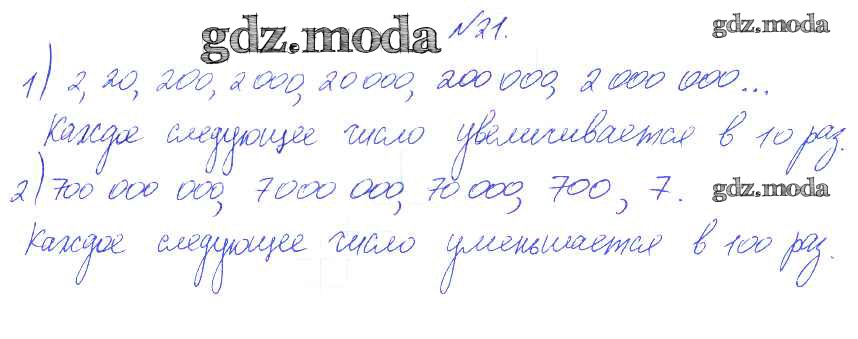 gdz.moda №21. gdz.moda
1) 2, 20, 200, 2 000, 20 000, 200 000, 2 000 000...
Каждое следующее число увеличивается в 10 раз.
2) 700 000 000, 7 000 000, 70 000, 700, 7. gdz.moda
Каждое следующее число уменьшается в 100 раз.